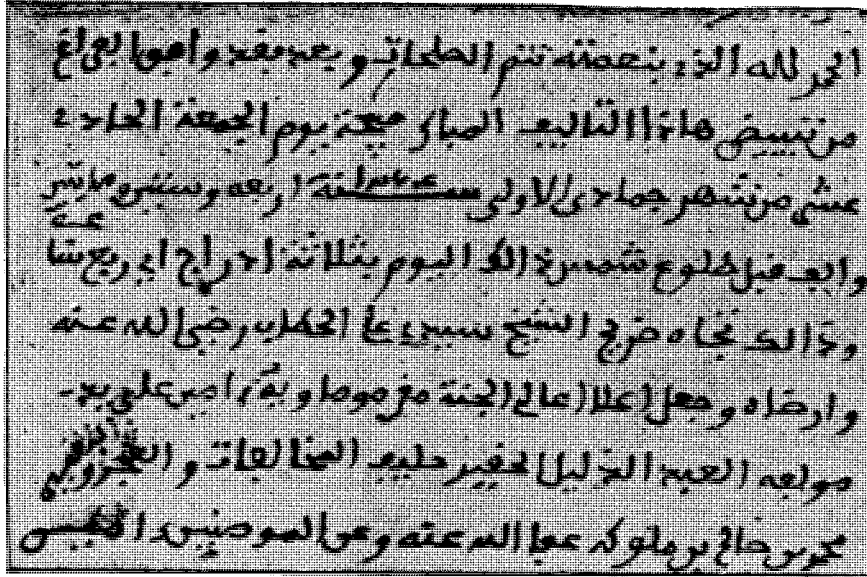 الحمد لله الذي بنعمته تتم الصلحات وبعد فقد وافق الفراغ
من تبييض هاذا التاليف المبارك صبيحة يوم الجمعة الحادي
عشر من شهر جمادى الاولى سنة اربعه وستين ومايتين
والف قبل طلوع شمس ذالك اليوم بثلاثة ادراج اي ربع ساعة
وذالك تجاه ضريح الشيخ سيدي علي الحطاب رضي الله عنه
وارضاه وجعل اعلا اعالي الجنة امين على يد
مولفه العبد الذليل الحقير حليف المخالفات و
محمد بن صالح بن ملوكه عفا الله عنه وعن المومنين